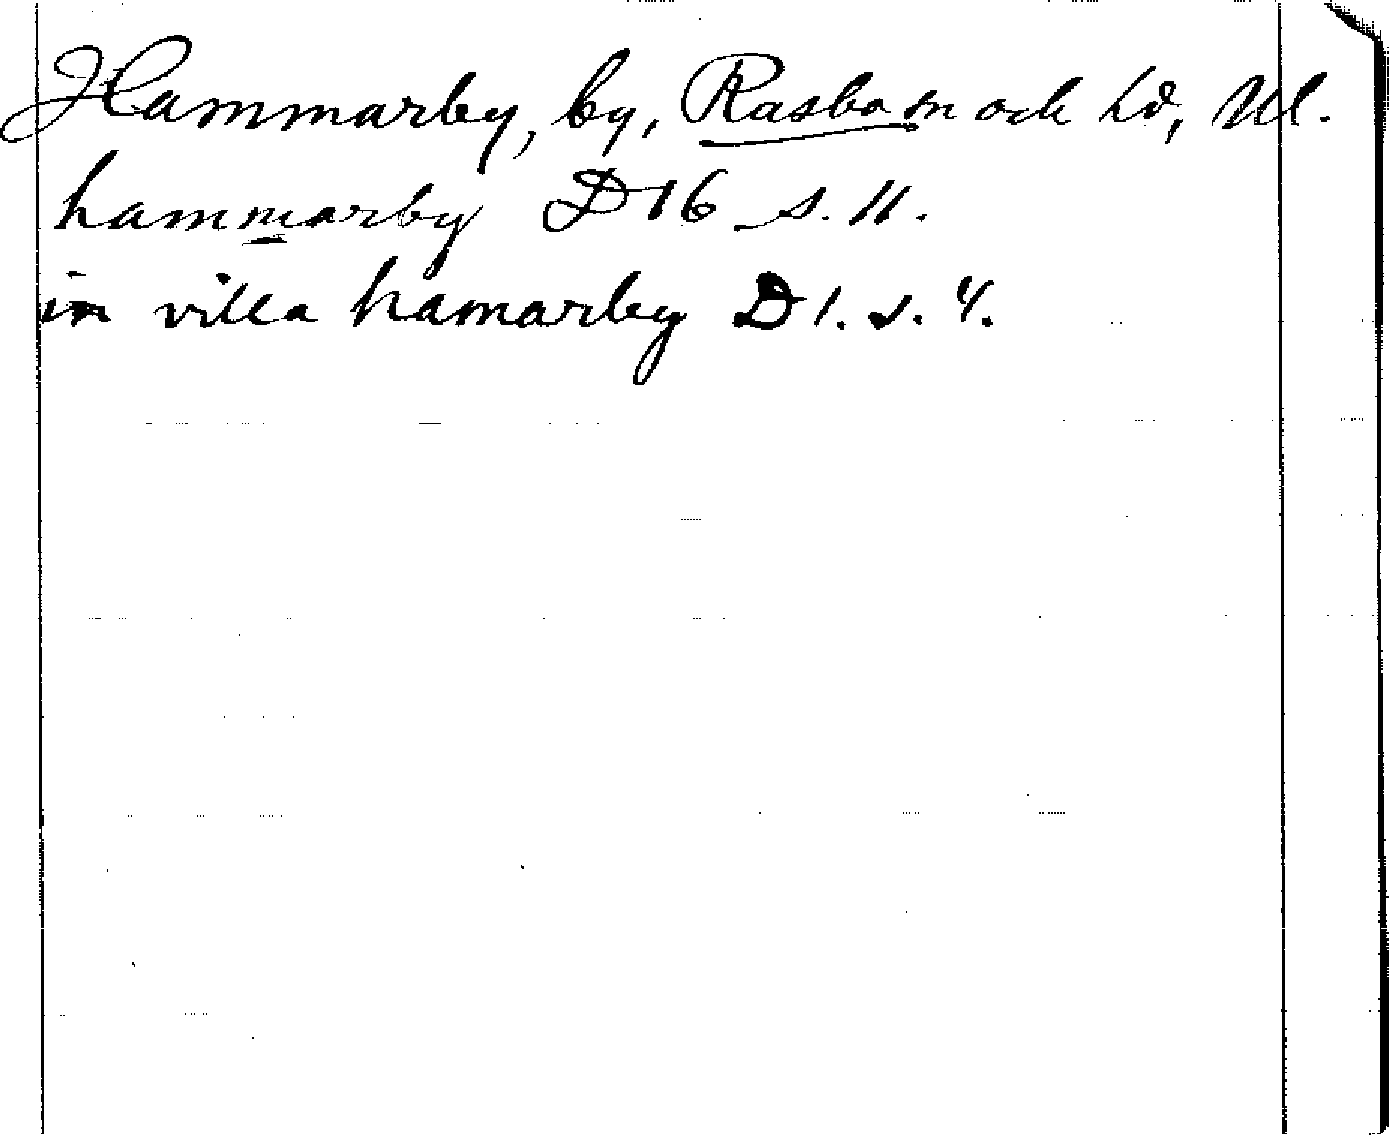 Hammarby, by, Rasbo sn och hd, Upl.
hammarby D 16 s. 11.
in villa hamarby D 1. s. 4.